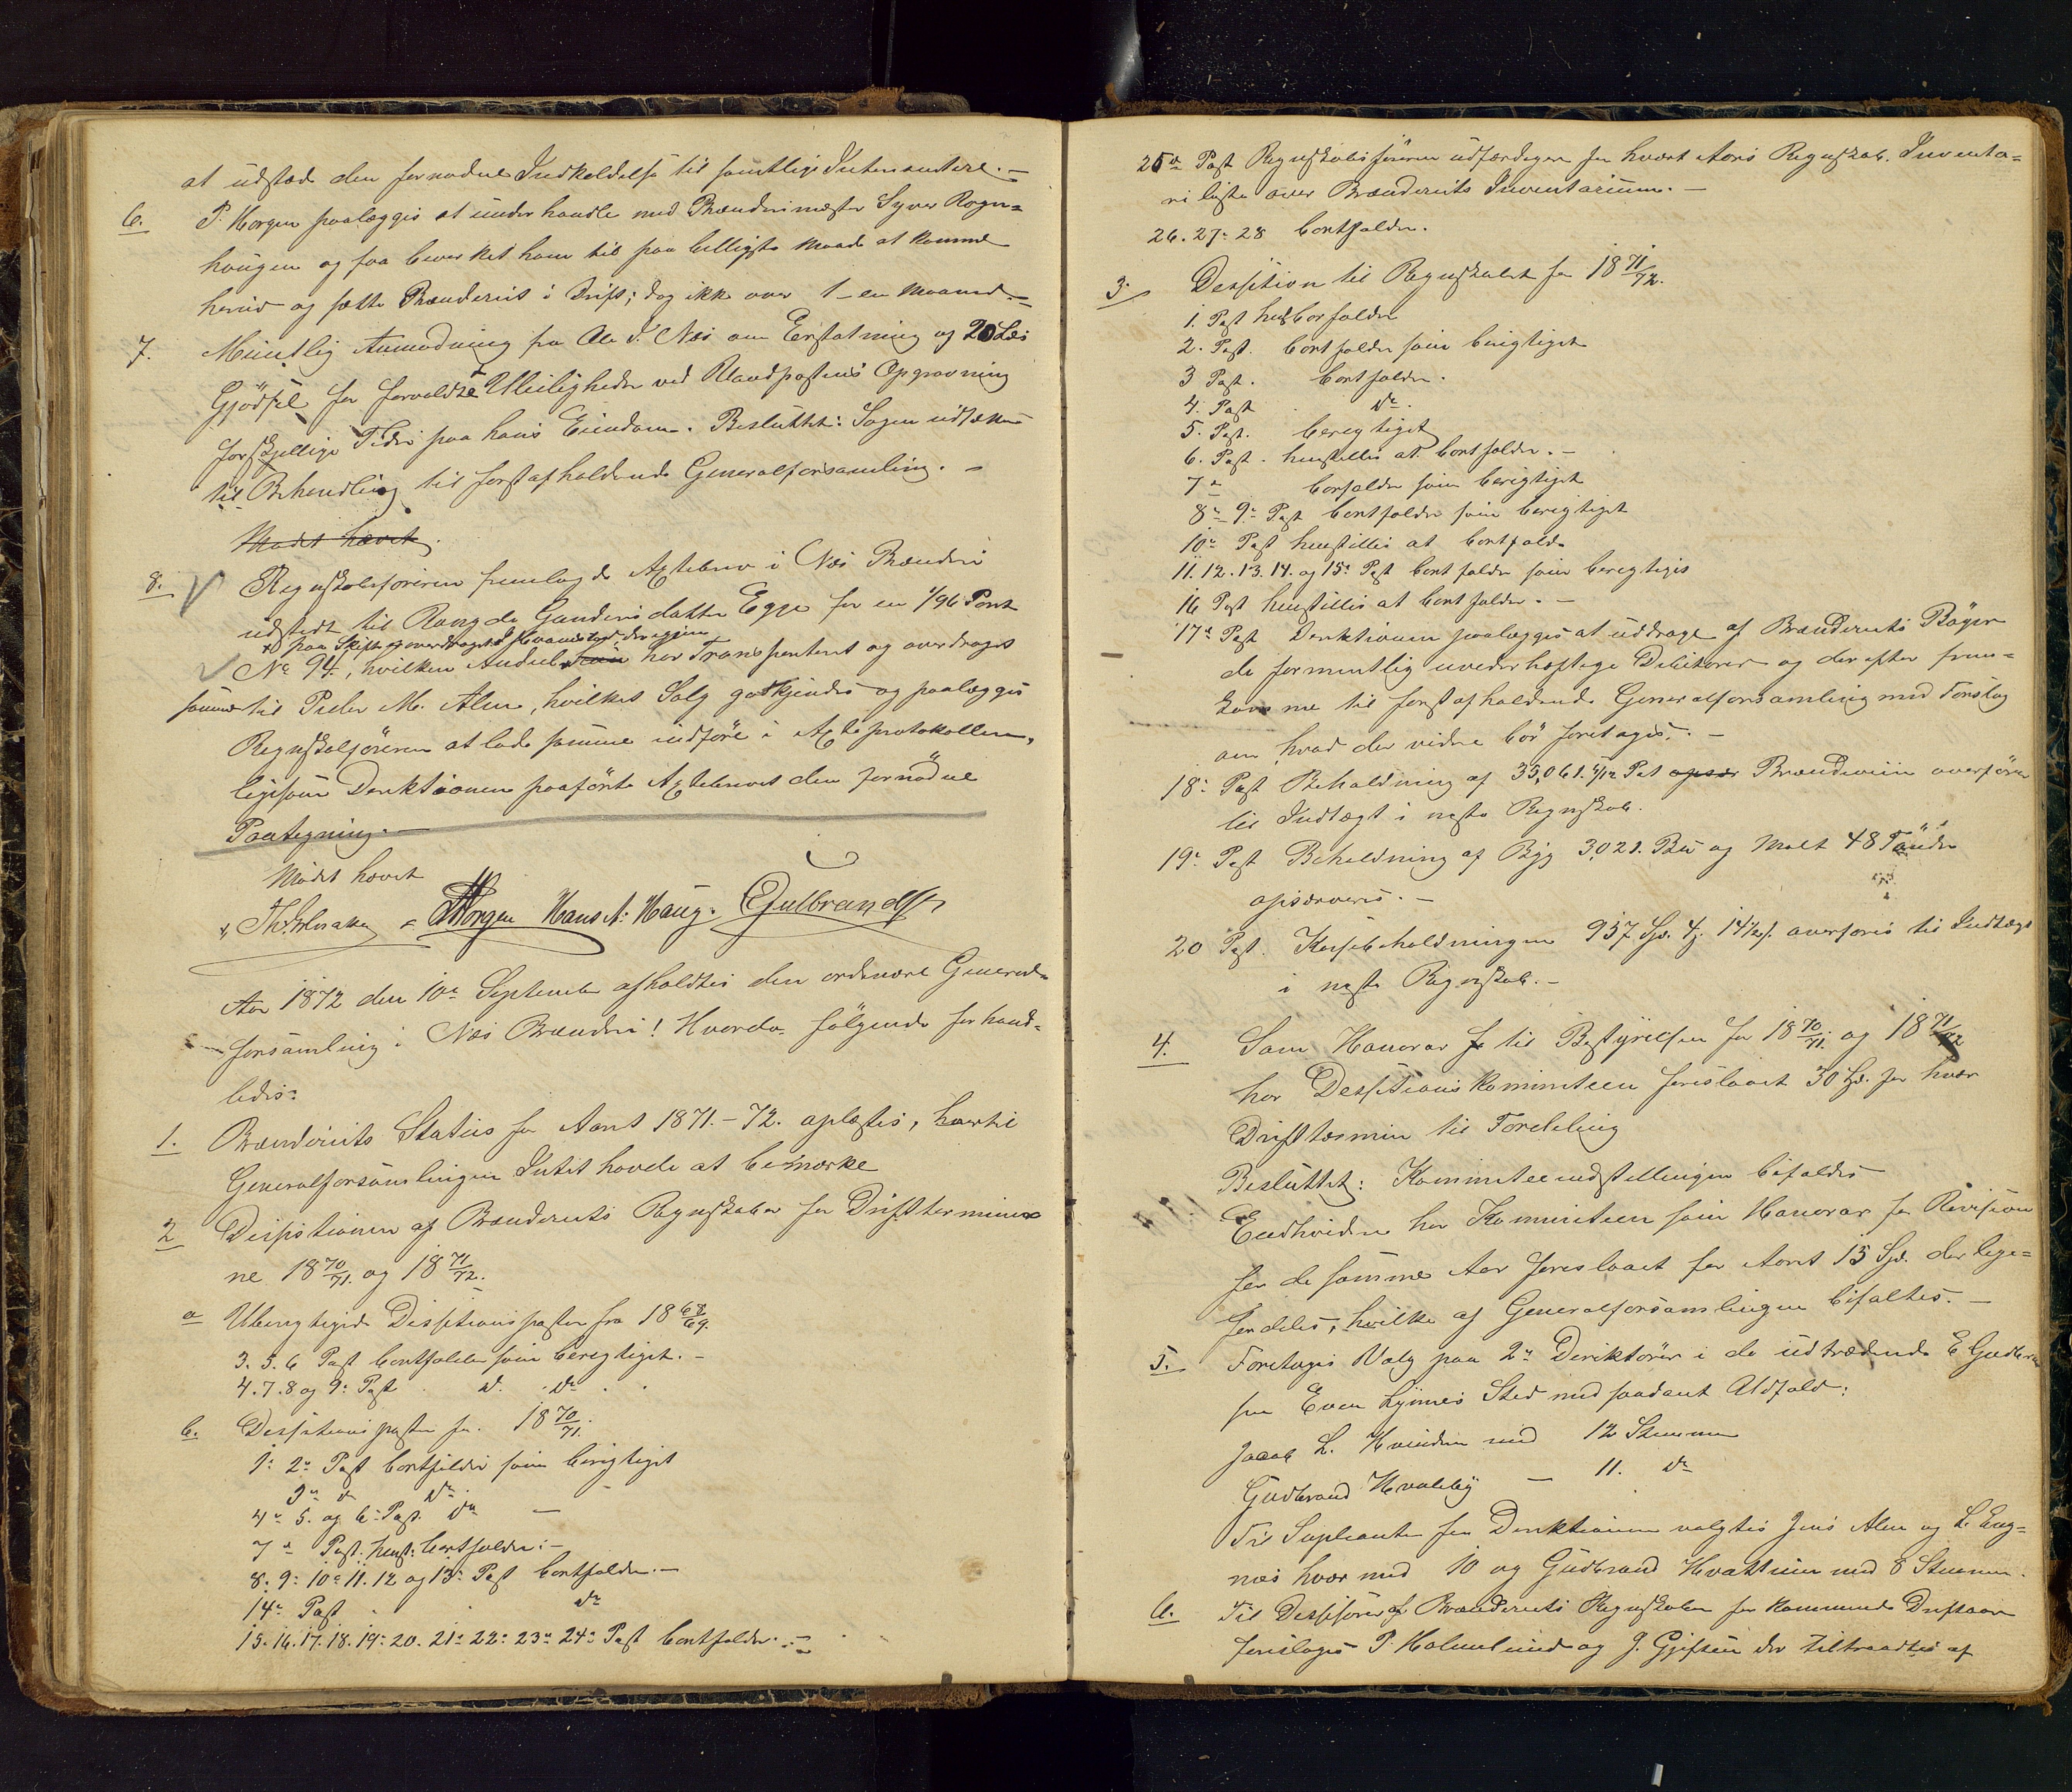 at udstæde den fornødne Indkaldelse til samtlige Interessentere.-
6. P. Horgen paalægges at underhandle med Brænderimester Syver Rogn-
haugen og faa bevirket ham til paa billigste Maade at komme
herned og sætte Brænderiet i Drift; dog ikke over 1 - en Maaned.-
7. Mundtlig Anmodning fra Ole I. Næs om Erstatning og 20 Læs
Gjødsel for forvoldte Uleiligheder ved Vandpostens Opgravning
forskjellige Tider paa hans Eiendom. Besluttet: Sagen udsættes
til Behandling til først afholdende Generalforsamling.-
Mødet hævet.
8. Regnskabsføreren fremlagde Aktiebrev i Næs Brænderi
udstedt til Rangde Gundersdatter Egge for en 1/96 Part
paa Skifte overdraget
No 94., hvilken Andeel har Transporteret og overdraget
samme til Peder M. Alm, hvilket Salg godkjendes og paalægges
Regnskabsføreren at lade samme indføre i Aktieprotokollen,
ligesom Direktionen paaførte Aktiebrevet den fornødne
Paategning.-
Mødet hævet
PHorgen Hans A. Haug. EGulbrandsen
Aar 1872 den 10de September afholdtes den ordinære General-
forsamling i Næs Brænderi! Hvorda følgende forhand-
ledes:
1. Brænderiets Status for Aaret 1871.-72. oplæstes, hvortil
Generalforsamlingen Intet havde at bemærke
2 Desisionen af Brænderiets Regnskaber for Driftterminer-
ne 18 70/71. og 18 71/72.
a Uberigtigede Desisionsposter fra 18 68/69.
3. 5. 6 Post bortfalder som berigtiget.-
4. 7. 8 og 9: Post . do. . do . .
b. Desisionsposter for. 18 70/71.
1: 2: Post bortfalder som berigtiget
3de do do
4de 5. og 6: Post. do -
7de Post. henst: bortfalder.-
8: 9: 10: 11. 12 og 13: Post bortfalder.-
14: Post do
15. 16. 17. 18. 19: 20. 21: 22: 23: 24: Post bortfalder.-
25de Post Regnskabsføreren udfærdiger for hvert Aars Regnskab. Inventa-
rieliste over Brænderiets Inventarium.-
26. 27: 28 bortfalder.
3. Desision til Regnskabet for 18 71/72.
1. Post bortfalder
2. Post. bortfalder som berigtiget
3 Post. bortfalder.
4. Post do.
5. Post. berigtiget
6. Post. henstilles at bortfalde.-
7de bortfalder som berigtiget
8: 9: Post bortfalder som berigtiget
10: Post henstilles at bortfalde
11. 12. 13. 14. og 15: Post bortfalder som berigtiget
16 Post henstilles at bortfalde.-
17: Post Direktionen paalægges at uddrage af Brænderiets Bøger
de formentlig uvederhæftige Debitorer og derefter frem-
komme til først afholdende Generalforsamling med Forslag
om hvad der videre bør foretages.-
18: Post Beholdning af 35,061. 5/12 Pot Brændeviin overføres
til Indtægt i næste Regnskab.
19: Post Beholdning af Byg 3,021. Bu og Malt 48 Tønder
opservers.-
20 Post. Kassebeholdningen 957 Spd. 4 14 1/2 overføres til Indtægt
i næste Regnskab.-
4. Som Honorar til Bestyrelsen for 18 70/71. og 18 71/72
har Desisionskommiteen foreslaaet 30 Spd. for hver
Drifttermin til Fordeling
Besluttet: Kommiteeindstillingen bifaldes
Endvidere har Kommiteen som Honorar for Revision
for de samme Aar foreslaaet for Aaret 15 Spd. der lige-
fordeles, hvilke af Generalforsamlingen bifaltes.-
5. Foretages Valg paa 2de Direktører i de udtrædende E Gudbran
sen Even Lynnes Sted med saadant Udfald:
Jacob L. Hvinden med 12 Stemmer
Gudbrand Hvaleby - 11. do
Til Supleanter for Direktionen valgtes Jens Alm og L. Eng-
næs hver med 10 og Gudbrand Hvattum med 8 Stemmer.
6. Til Desisorer af Brænderiets Regnskaber for kommende Driftsaar
foreslages P. Holmlund og J. Gjefsen der tiltraadtes af